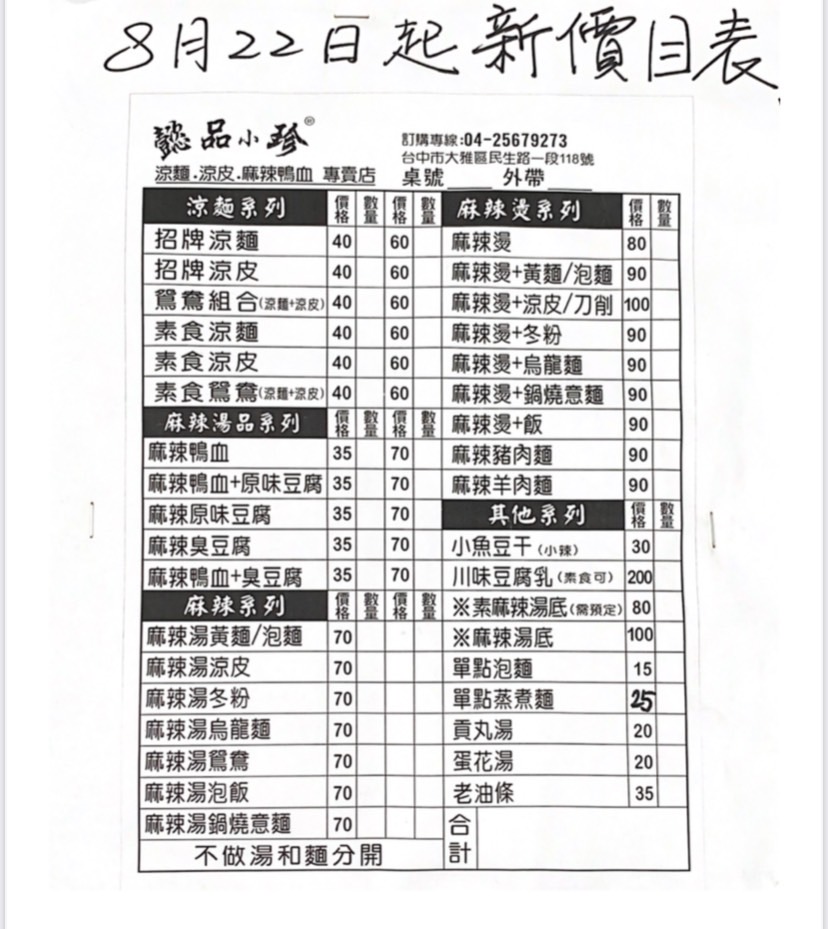 8月22日起新價目表
懿品小珍®
訂購專線:04-25679273
台中市大雅區民生路一段118號
涼麵.涼皮.麻辣鴨血 專賣店
桌號____ 外帶____
涼麵系列 價格 數量 價格 數量
招牌涼麵 40 60
招牌涼皮 40 60
鴛鴦組合(涼麵+涼皮) 40 60
素食涼麵 40 60
素食涼皮 40 60
素食鴛鴦(涼麵+涼皮) 40 60
麻辣湯品系列 價格 數量 價格 數量
麻辣鴨血 35 70
麻辣鴨血+原味豆腐 35 70
麻辣原味豆腐 35 70
麻辣臭豆腐 35 70
麻辣鴨血+臭豆腐 35 70
麻辣系列 價格 數量 價格 數量
麻辣湯黃麵/泡麵 70
麻辣湯涼皮 70
麻辣湯冬粉 70
麻辣湯烏龍麵 70
麻辣湯鴛鴦 70
麻辣湯泡飯 70
麻辣湯鍋燒意麵 70
不做湯和麵分開
麻辣燙系列 價格 數量
麻辣燙 80
麻辣燙+黃麵/泡麵 90
麻辣燙+涼皮/刀削 100
麻辣燙+冬粉 90
麻辣燙+烏龍麵 90
麻辣燙+鍋燒意麵 90
麻辣燙+飯 90
麻辣豬肉麵 90
麻辣羊肉麵 90
其他系列 價格 數量
小魚豆干(小辣) 30
川味豆腐乳(素食可) 200
※素麻辣湯底(需預定) 80
※麻辣湯底 100
單點泡麵 15
單點蒸煮麵 25
貢丸湯 20
蛋花湯 20
老油條 35
合計